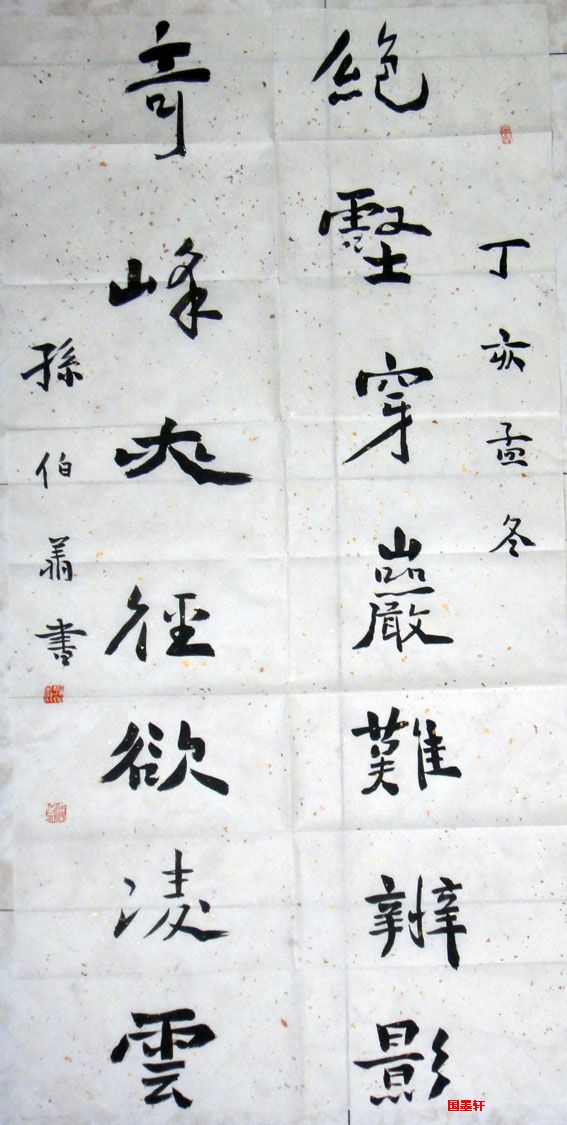 丁亥孟冬
絶壑穿巖難辨影
奇峰夾徑欲凌雲
孫伯翔書
国墨轩